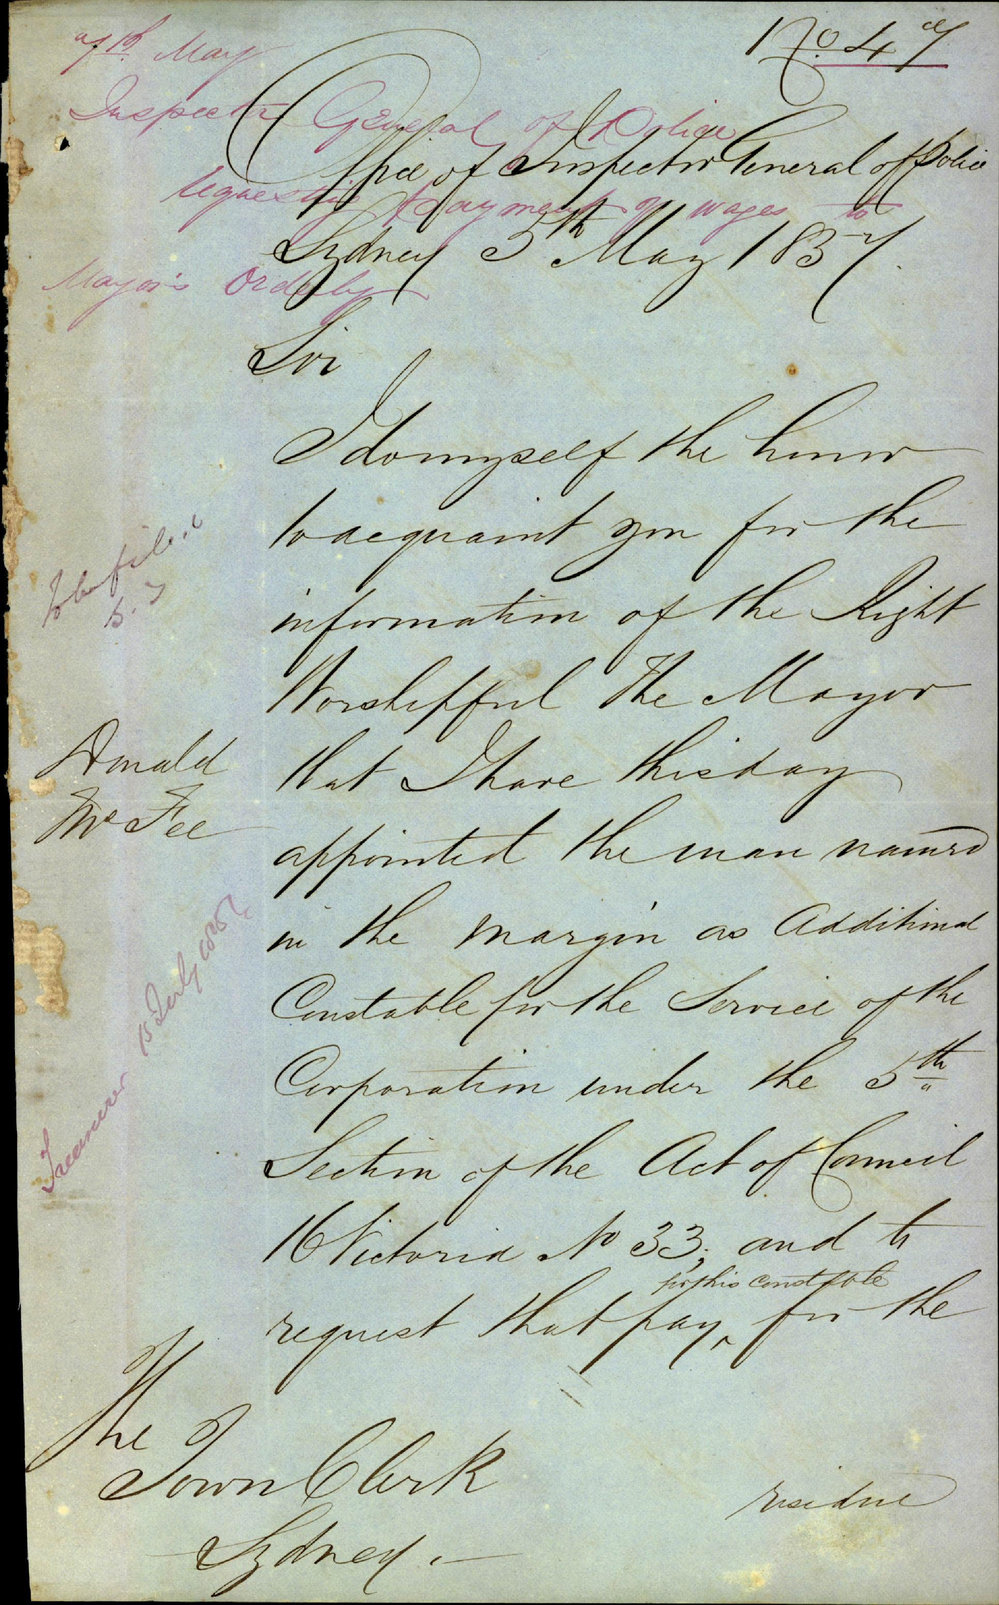 No. 47
May
Inspector General of Police
requesting payment of wages to
Mayor's Orderly
Office of Inspector General of Police
Sydney 5th May 1857.
Sir
I do myself the honor
to acquaint you for the
information of the Right
Worshipful The Mayor
that I have this day
appointed the man named
in the margin as Additional
Constable for the Service of the
Corporation under the 5th
Section of the Act of Council
16 Victoria No 33; and to
for this constable
request that pay, for the
Donald
McFee
To be filed
Treasurer 15 July 1857
The
Town Clerk
Sydney. —
residue